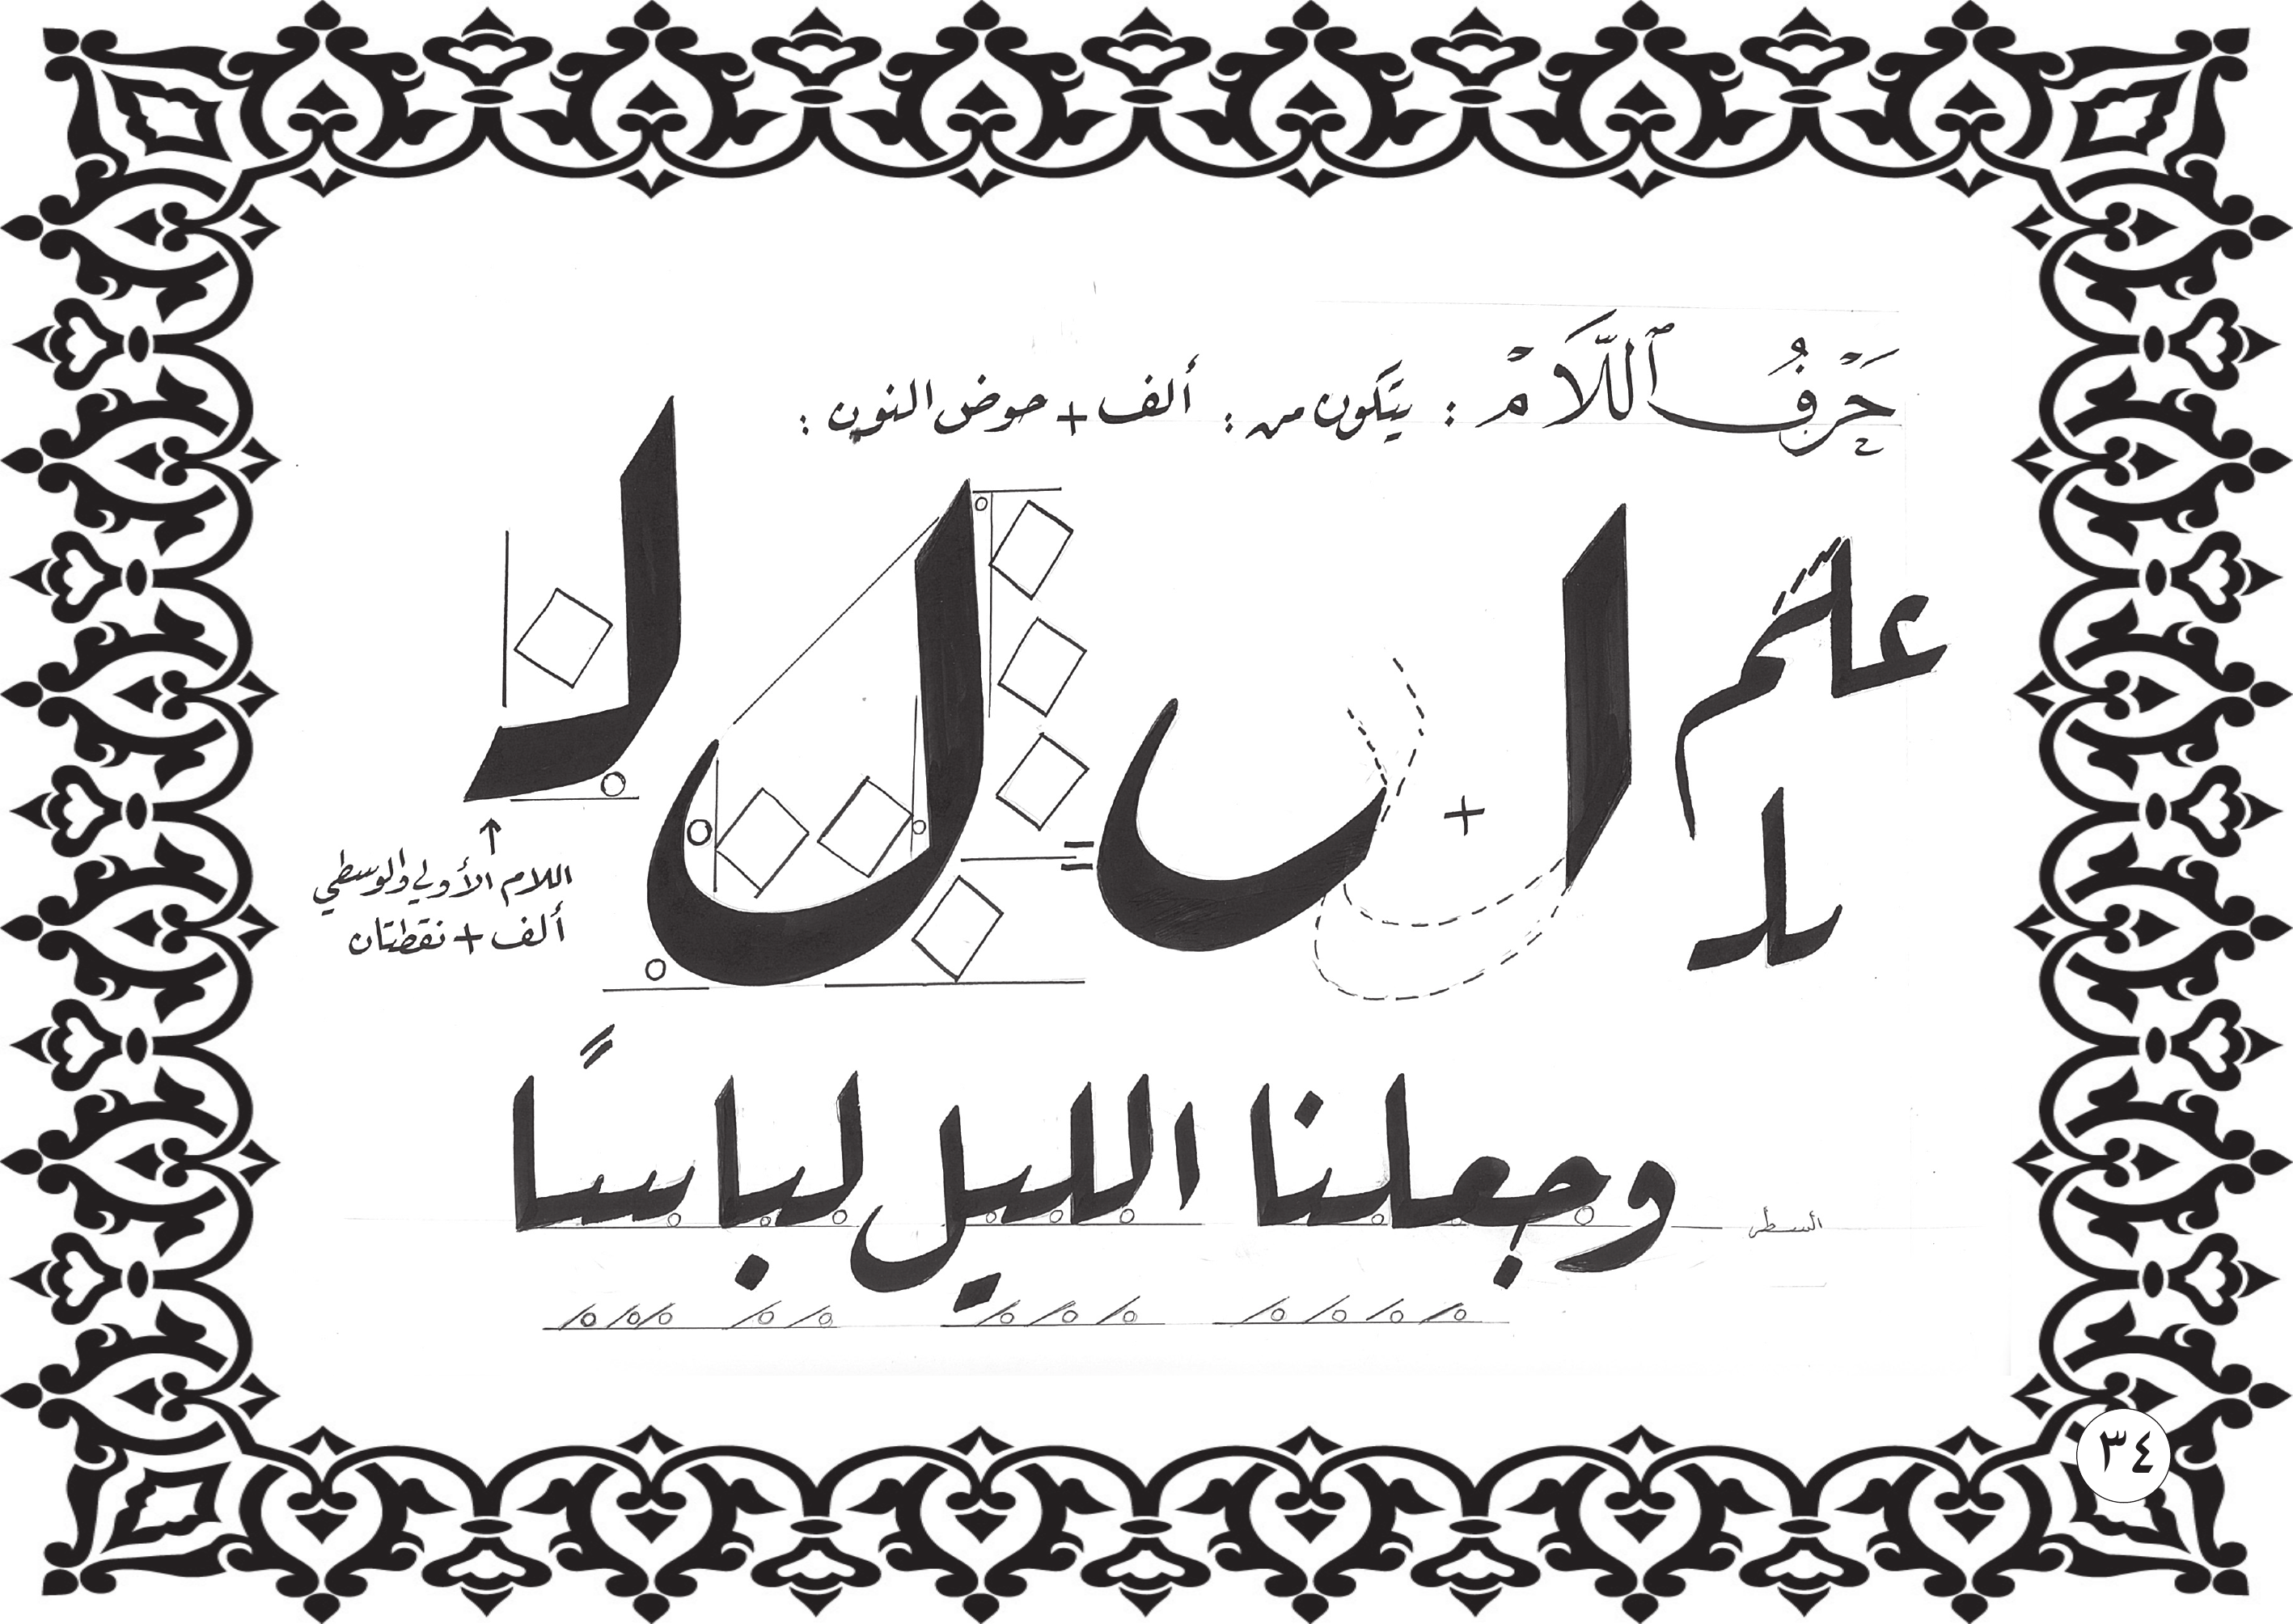 حَرْفُ ٱللَّامْ : يتكون من : ألف + حوض النون :
علم
ا + ں = ل
لـ
ـلـ
اللام الأولى والوسطى
ألف + نقطتان
وجعلنا الليل لباساً
السطر
٣٤